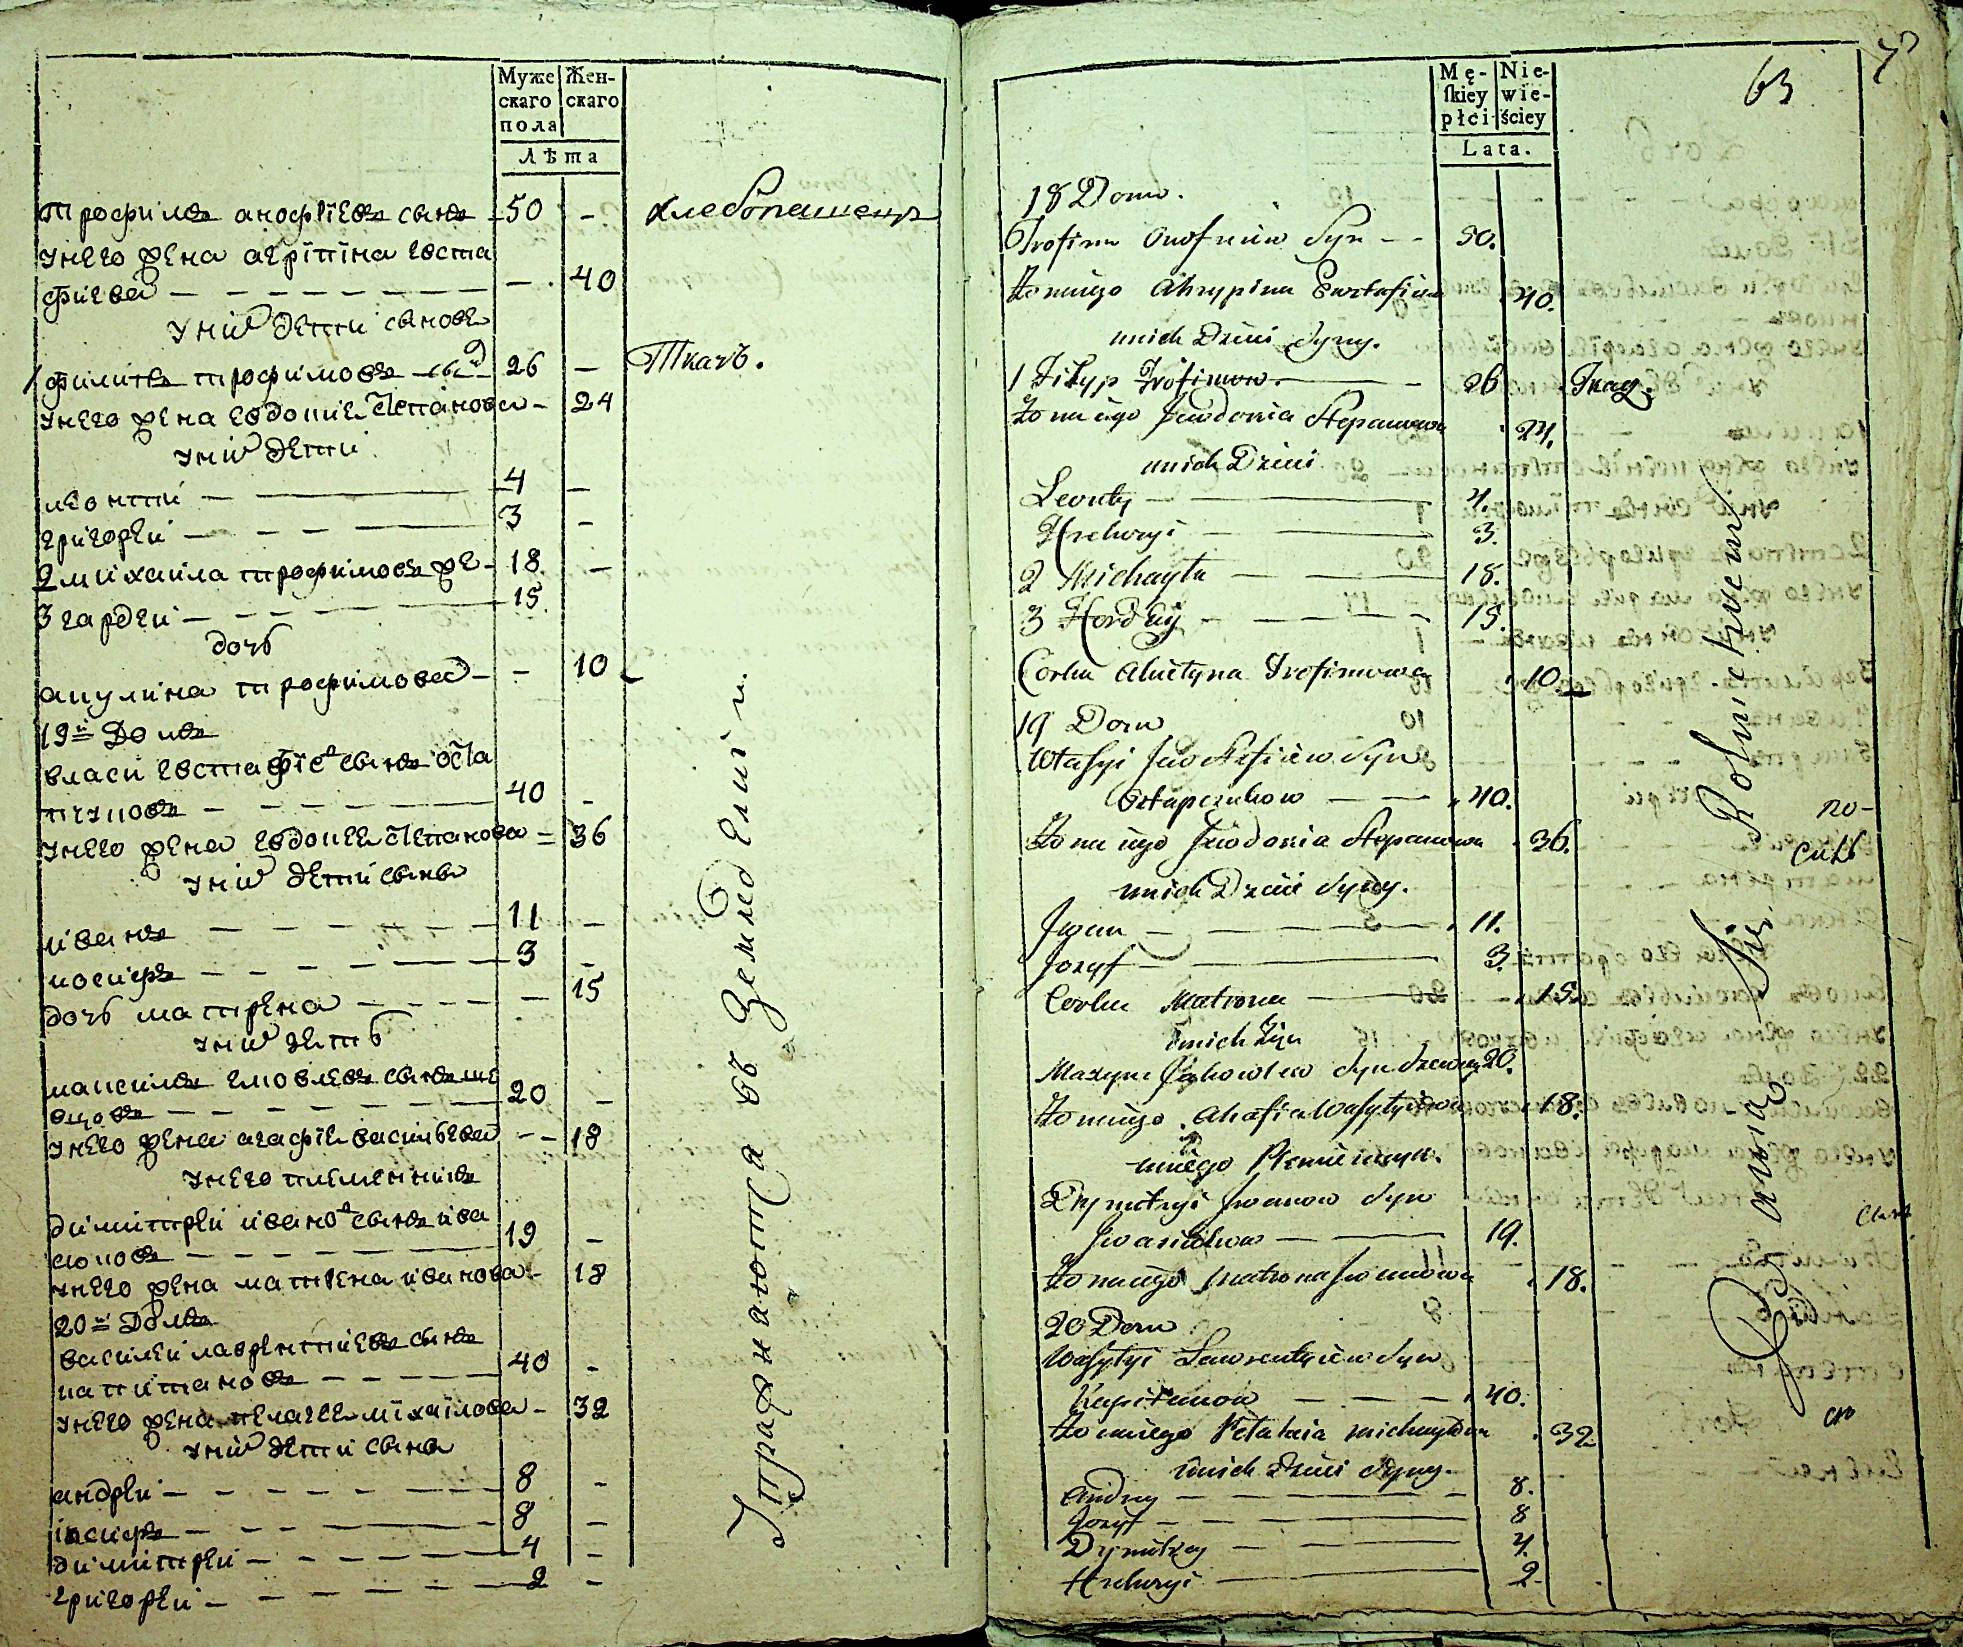 Муже
скаго
пола
Жен-
скаго
Лѣта
трофимъ анофріевъ синъ - 50 -
унего жена агріпіна евста
фиева - 40
уних дети синове
1 филипъ трофимовъ 26 -
унего жена евдокие степанова - 24
уних дети
леонтий 4 -
григорей 3 -
2 михаила трофимовъ 18 -
3 гардей 15
дочь
акулина трофимова - 10
19й Домъ
власи евстафіев синъ оста
пчуковъ 40 -
унего жена евдокее степанова - 36
уних дети сины
иванъ 11 -
иосифъ 3 -
дочь матрена - 15
уних зять
максимъ яковлевъ синъ ше
вцовъ 20 -
унего жена агафіе васильева - 18
унего племенникъ
димитрей иванов синъ ива
сюковъ 19 -
унего жена матрена иванова - 18
20й Домъ
василей лаврентиевъ синъ
капитановъ 40 -
унего жена пелагее михаилова - 32
уних дети сина
андрей 8 -
іосифъ 8 -
димитрей 4 -
григорей 2 -
хлебопашецъ
Ткачъ.
Упражнаются въ Земледелии.
63
Mę-
ſkiey
płci
Nie-
wie-
ściey
Lata.
18 Dom.
Trofim Onofriiw Syn 50.
Żona iego Ahrypina Ewstafiiwa 40.
u nich Dzieci Syny.
1 Filyp Trofimow 26 Tkacz.
Żona iego Jewdokia Stepanowa 24.
u nich Dzieci
Leonty 4.
Hrehoryi 3.
2 Michayła 18.
3 Hordiy 15.
Corka Akulyna Trofimowa 10.
19 Dom
Własyi Jewstafiiew Syn
Ostapczukow 40.
Żona iego Jewdokia Stepanowa 36.
u nich Dzieci Syny.
Jwan 11.
Jozyf 3.
Corka Matrona 15.
u nich Zięć
Maxym Jakowlew Syn Szewcow 20.
Żona iego Ahafia Wasylyiwa 18.
u niego Plemiennyk.
Dymitryi Jwanow Syn
Jwasiukow 19.
Żona iego Matrona Jwanowa 18.
20 Dom
Wasylyi Lawrentyiew Syn
Kapitanow 40.
Żona iego Pelahia Michayłowa 32
u nich Dzieci Syny.
Andrey 8.
Jozyf 8
Dymitrey 4.
Hrehoryi 2.
Bawią Się Rolnictwem